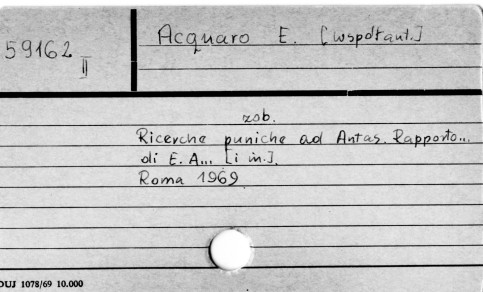 59162
II
Acquaro E. [współaut.]
zob.
Ricerche puniche ad Antas. Rapporto...
di E. A... [i in.].
Roma 1969
DUJ 1078/69 10.000